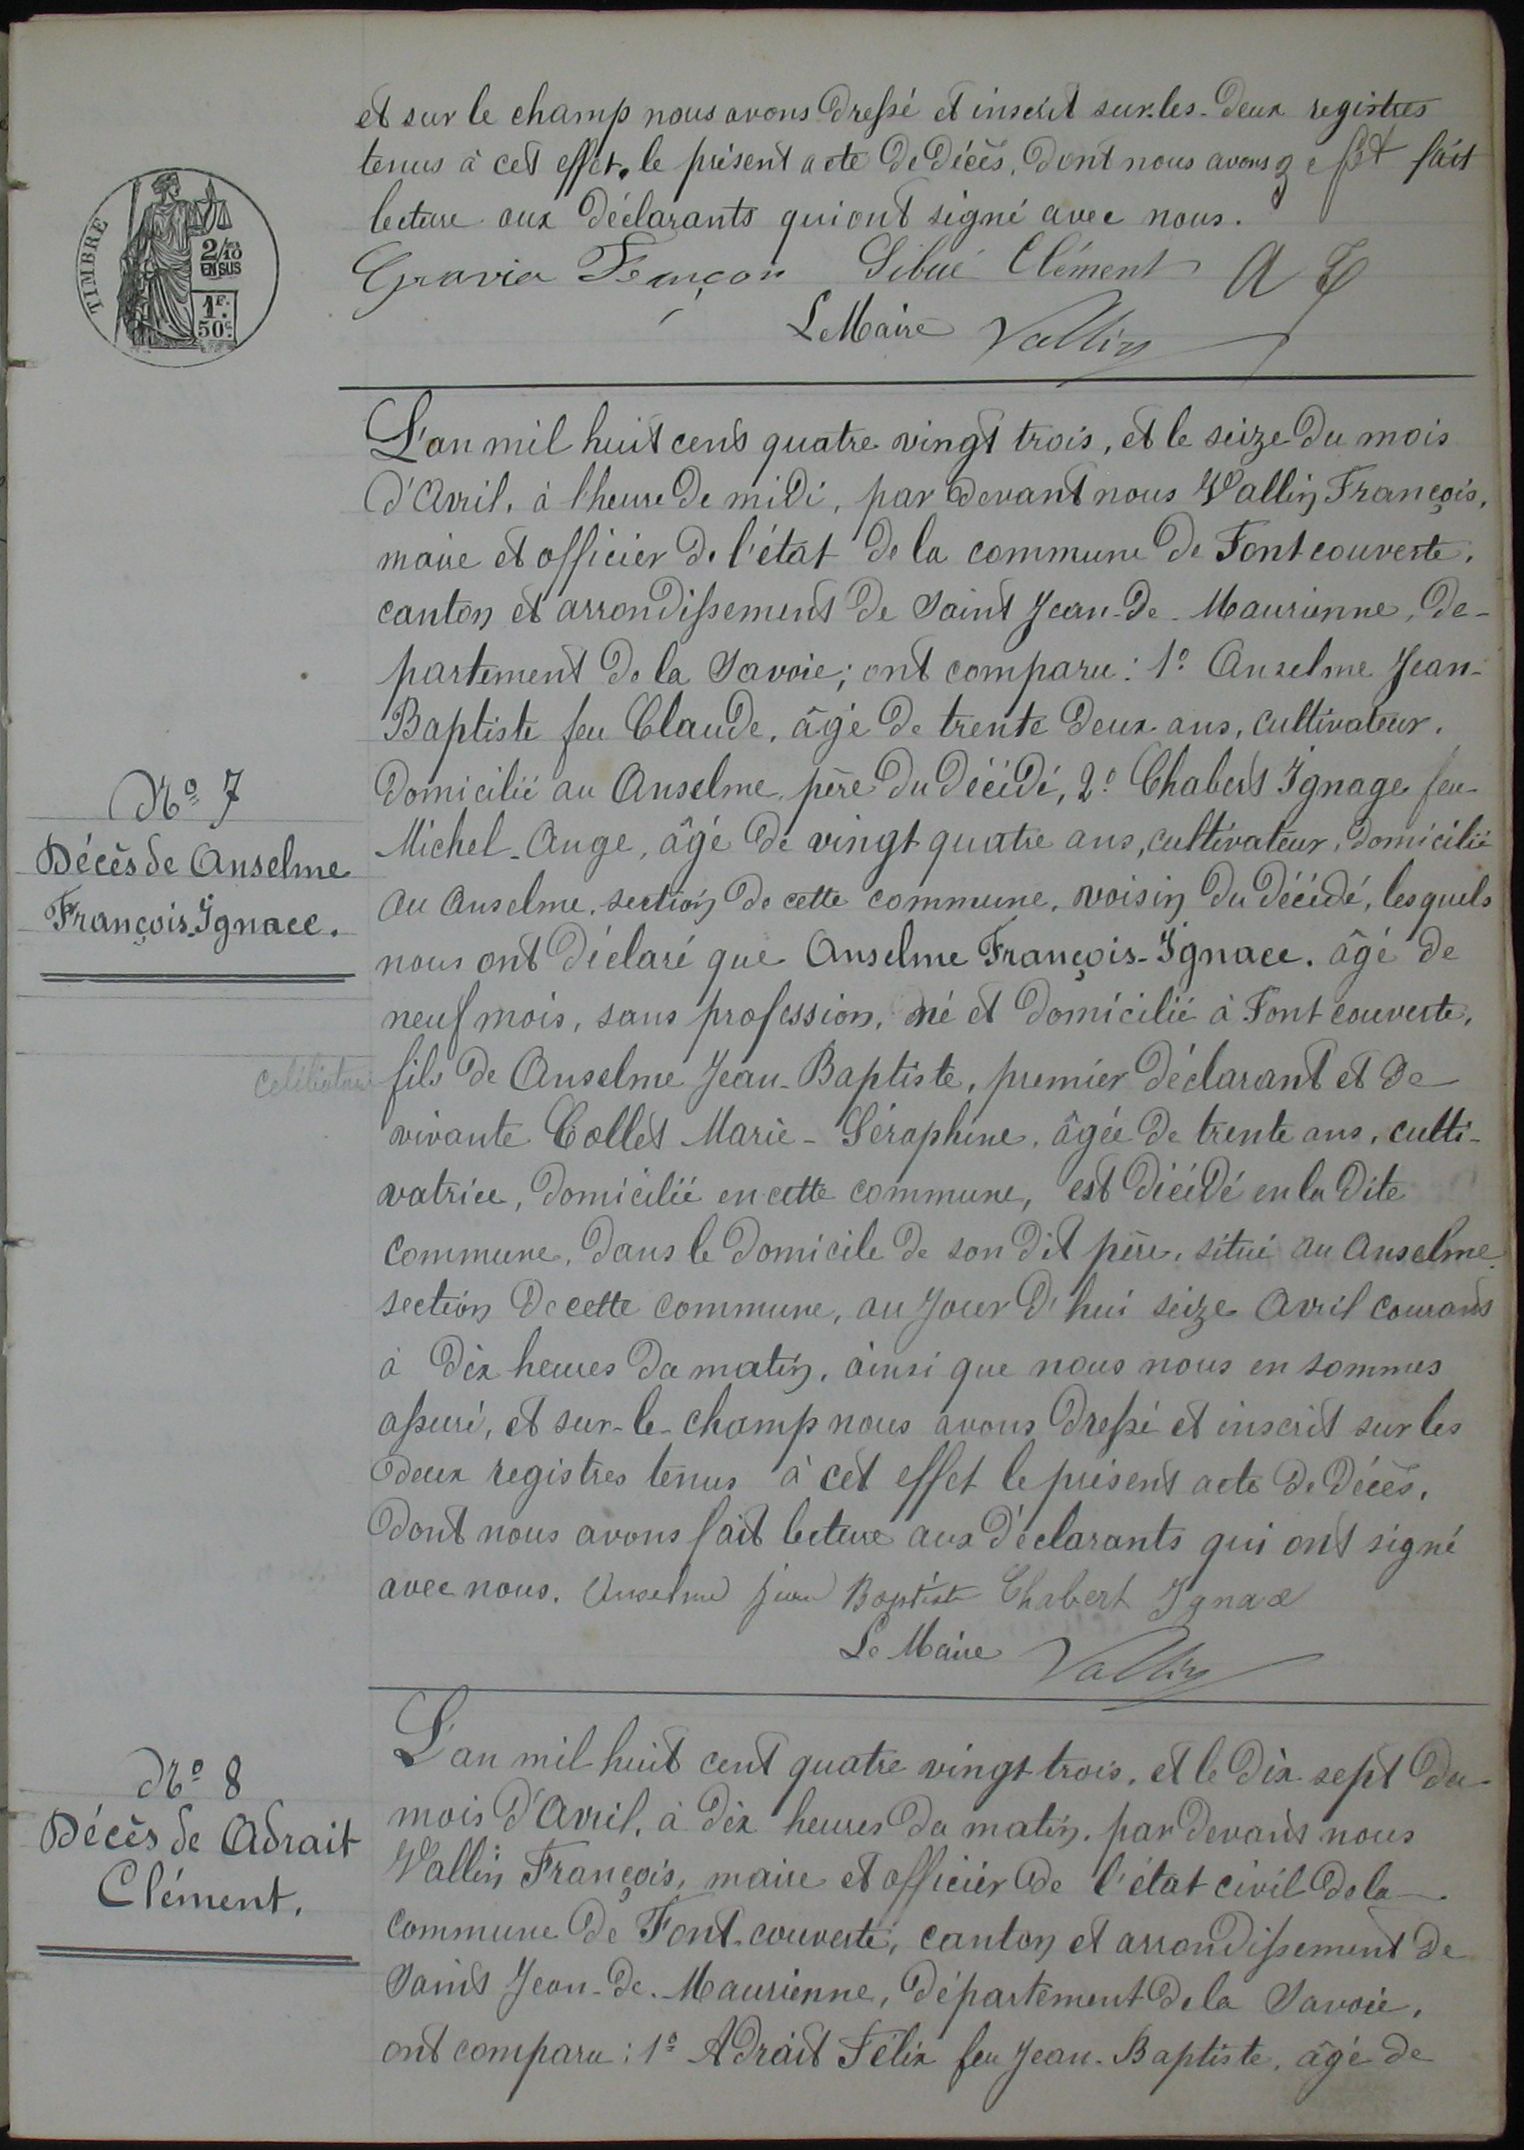 et sur le champ nous avons dressé et inscrit sur les deux registres
tenus à cet effet, le présent acte de décès, dont nous avons fait
lecture aux déclarants qui ont signé avec nous.
TIMBRE
2/10
EN SUS
1F.
50c.
Gravier François Sibué Clément
Le Maire Vallin
L'an mil huit cent quatre vingt trois, et le seize du mois
d'Avril, à l'heure de midi, par devant nous Vallin François,
maire et officier de l'état de la commune de Fontcouverte,
canton et arrondissement de Saint Jean-de-Maurienne, de-
partement de la Savoie; ont comparu: 1º Anselme Jean-
Baptiste feu Claude, âgé de trente deux ans, cultivateur,
domicilié au Anselme, père du décédé, 2º Chabert Ignage feu
Nº 7
Décès de Anselme
François-Ignace.
Michel-Ange, âgé de vingt quatre ans, cultivateur, domicilié
au Anselme, section de cette commune, voisin du décédé, lesquels
nous ont déclaré que Anselme François-Ignace, âgé de
neuf mois, sans profession, né et domicilié à Fontcouverte,
célibataire
fils de Anselme Jean-Baptiste, premier déclarant et de
vivante Collet Marie-Séraphine, âgée de trente ans, culti-
vatrice, domicilié en cette commune, est décédé en la dite
commune, dans le domicile de son dit père, situé au Anselme
section de cette commune, au jour d'hui seize Avril courant
à dix heures du matin, ainsi que nous nous en sommes
assuré, et sur-le-champ nous avons dressé et inscrit sur les
deux registres tenus à cet effet le présent acte de décès,
dont nous avons fait lecture aux déclarants qui ont signé
avec nous. Anselme Jean Baptiste Chabert Ignace
Le Maire Vallin
Nº 8
Décès de Adrait
Clément.
L'an mil huit cent quatre vingt trois, et le dix sept du
mois d'Avril, à dix heures du matin, par devant nous
Vallin François, maire et officier de l'état civil de la
commune de Font-couverte, canton et arrondissement de
Saint Jean-de-Maurienne, département de la Savoie,
ont comparu: 1º Adrait Félix feu Jean-Baptiste, âgé de